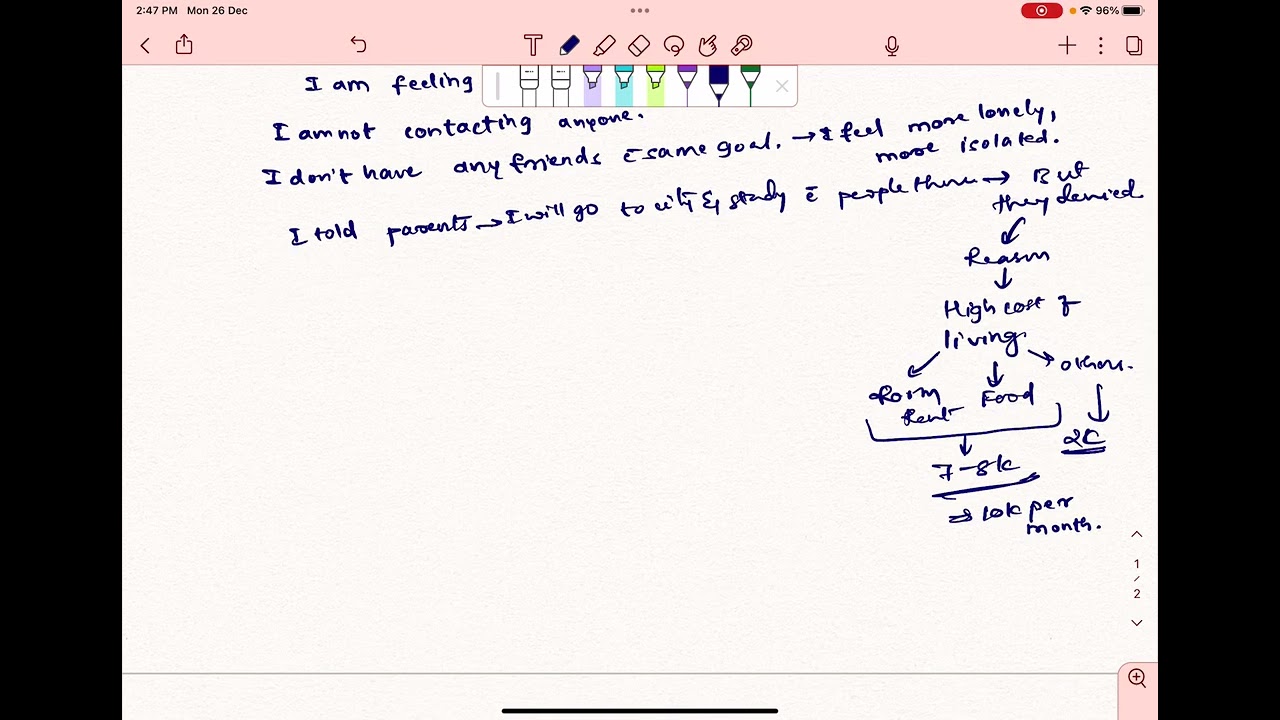 2:47 PM Mon 26 Dec
96%
T
I am feeling
I am not contacting anyone.
I don't have any friends c̄ same goal. → I feel more lonely,
more isolated.
I told parents → I will go to city & study c̄ people there → But
they denied
Reason
High cost of
living
Room
Rent
Food
others.
7-8k
2k
⇒ 10k per
month.
1
/
2